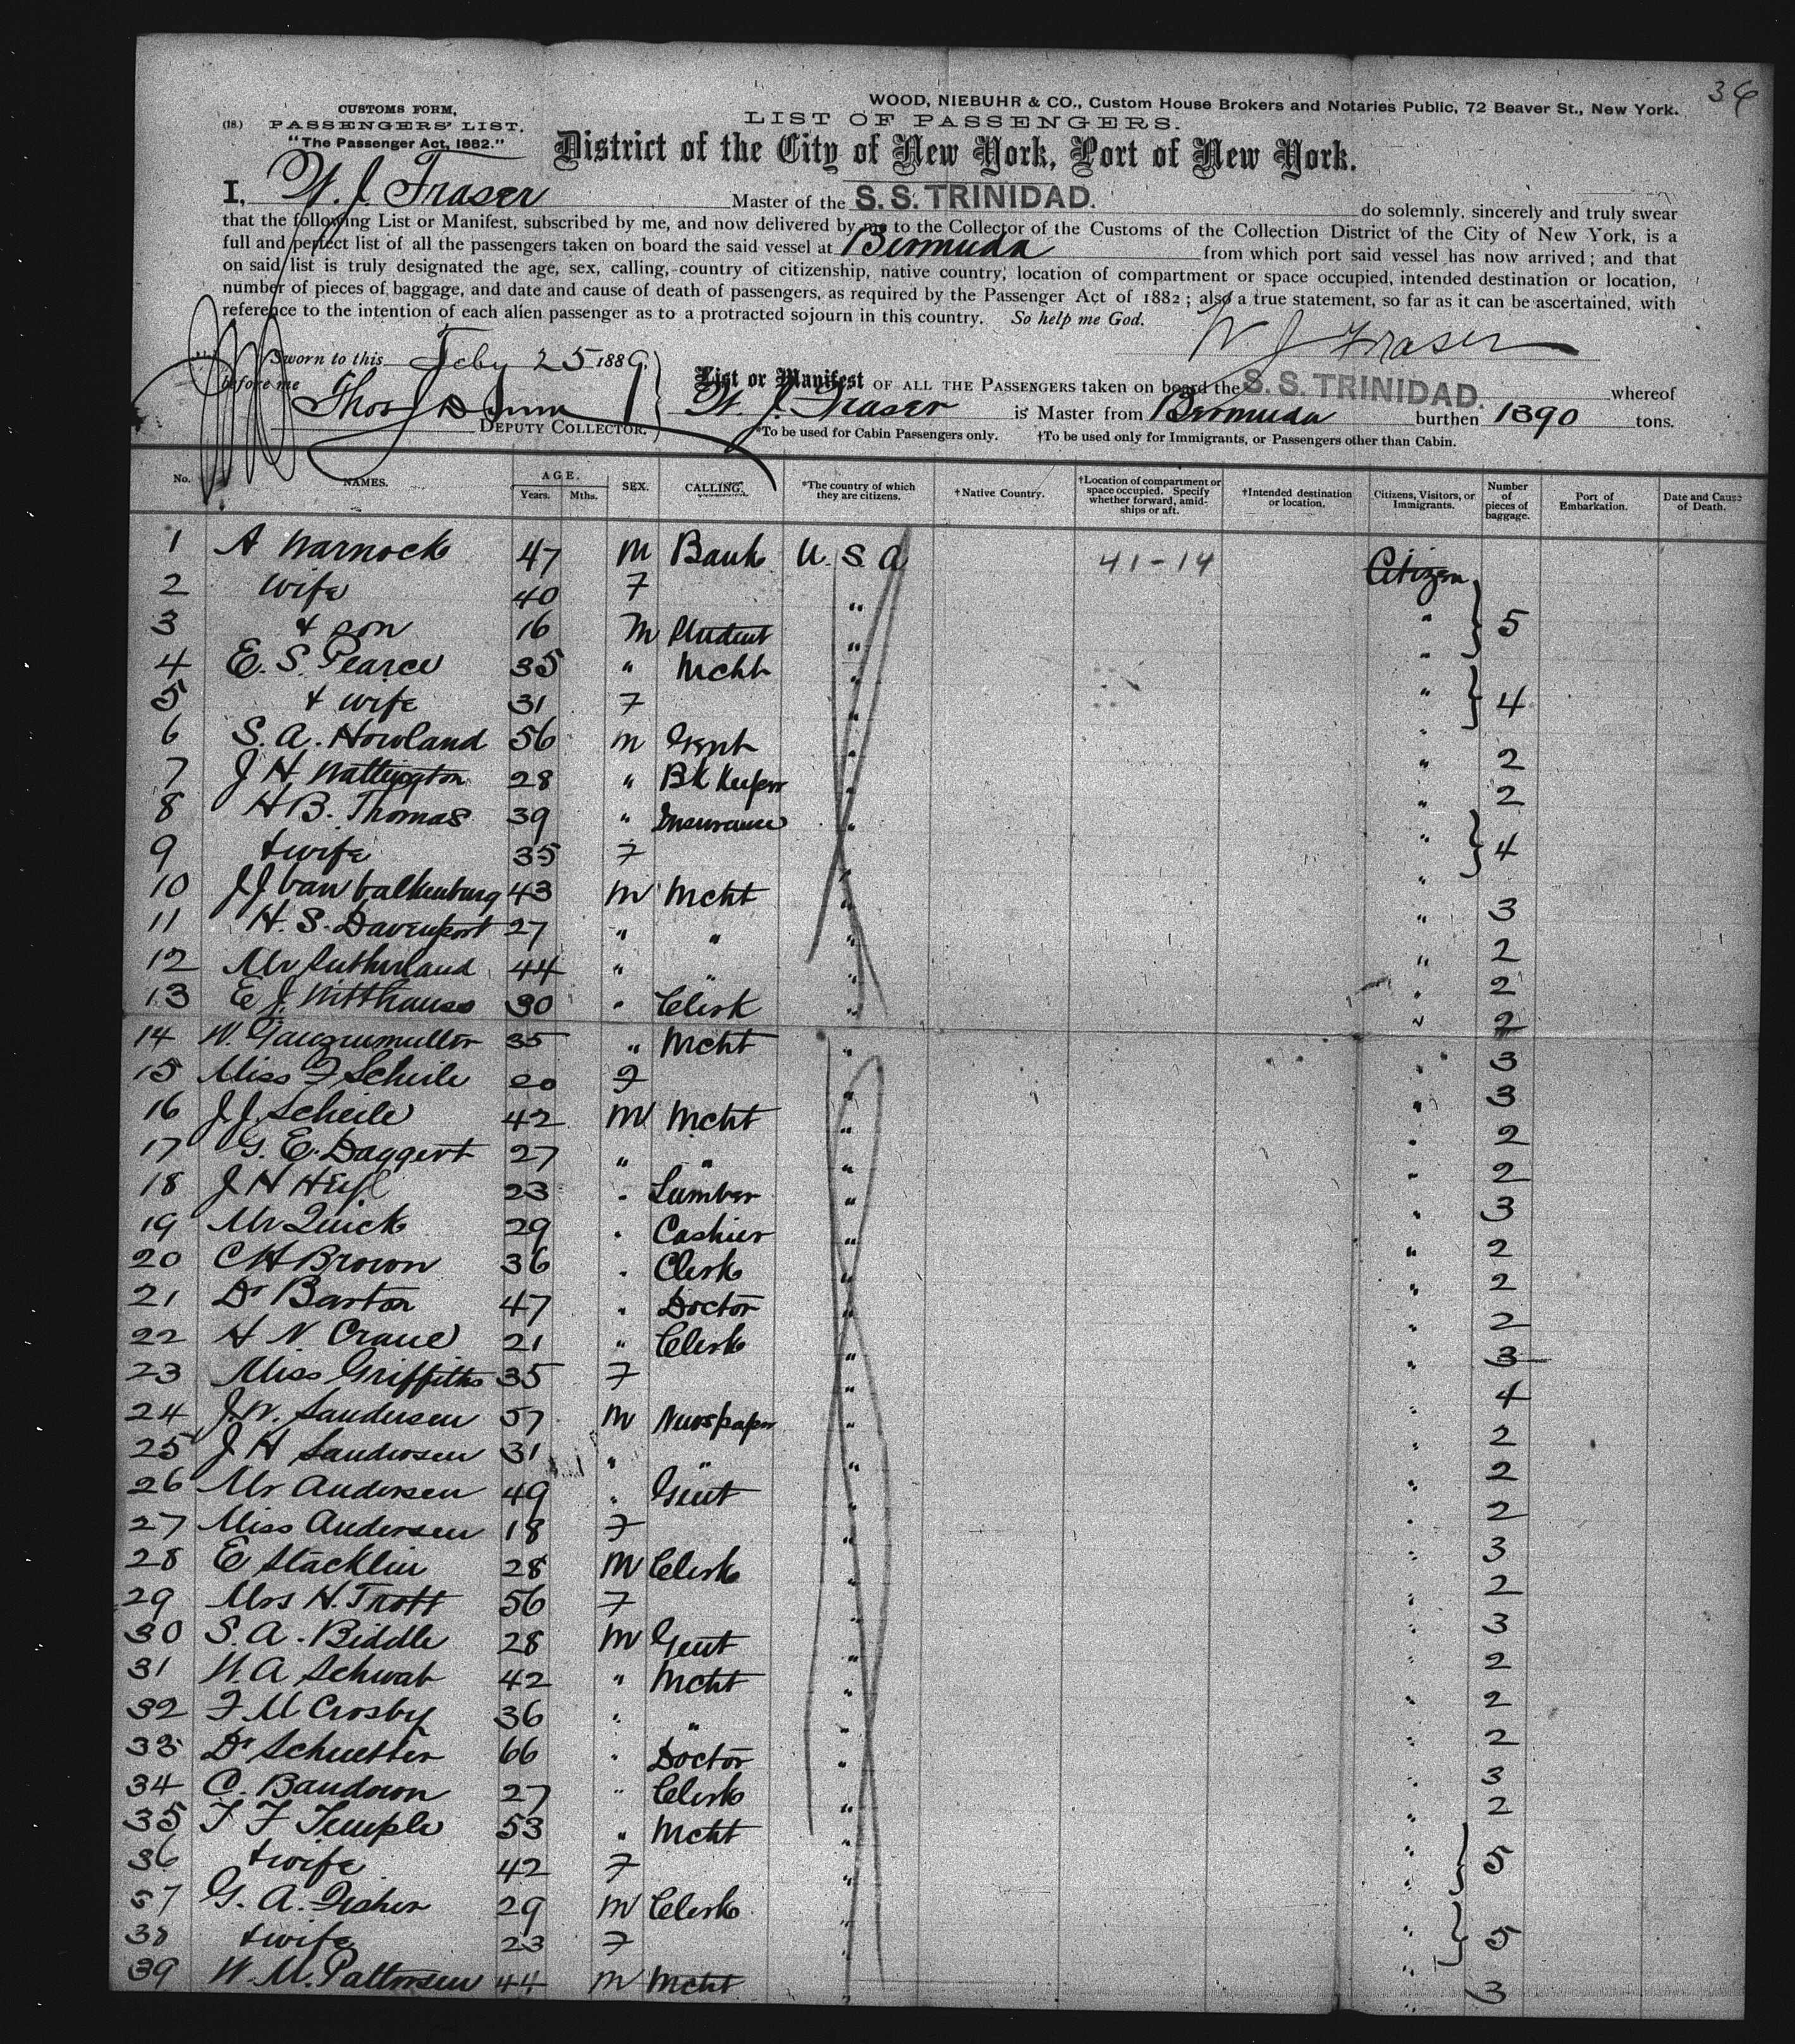 36
WOOD, NIEBUHR & CO., Custom House Brokers and Notaries Public, 72 Beaver St., New York.
CUSTOMS FORM,
(18.) PASSENGERS' LIST.
"The Passenger Act, 1882."
LIST OF PASSENGERS.
District of the City of New York, Port of New York.
I, W. J. Fraser Master of the S. S. TRINIDAD. do solemnly, sincerely and truly swear
that the following List or Manifest, subscribed by me, and now delivered by me to the Collector of the Customs of the Collection District of the City of New York, is a
full and perfect list of all the passengers taken on board the said vessel at Bermuda from which port said vessel has now arrived; and that
on said list is truly designated the age, sex, calling, country of citizenship, native country, location of compartment or space occupied, intended destination or location,
number of pieces of baggage, and date and cause of death of passengers, as required by the Passenger Act of 1882; also a true statement, so far as it can be ascertained, with
reference to the intention of each alien passenger as to a protracted sojourn in this country. So help me God.
W J Fraser
Sworn to this Feby 25 1889.
before me Thos
DEPUTY COLLECTOR.
List or Manifest OF ALL THE PASSENGERS taken on board the S. S. TRINIDAD. whereof
W. J. Fraser is Master from Bermuda burthen 1390 tons.
*To be used for Cabin Passengers only. †To be used only for Immigrants, or Passengers other than Cabin.
No. NAMES. AGE. Years. Mths. SEX. CALLING. *The country of which they are citizens. †Native Country. †Location of compartment or space occupied. Specify whether forward, amidships or aft. †Intended destination or location. Citizens, Visitors, or Immigrants. Number of pieces of baggage. Port of Embarkation. Date and Cause of Death.
1 A Warnock 47 M Bank U. S. A 41-14 Citizen
2 wife 40 F " "
3 & son 16 M Student " " 5
4 E. S. Pearce 35 " Mcht " "
5 & wife 31 F " " 4
6 S. A. Howland 56 M Gent " " 2
7 J H Wattington 28 " Bk Keeper " " 2
8 H B. Thomas 39 " Insurance " "
9 & wife 35 F " " 4
10 J J Van Valkenburg 43 M Mcht " " 3
11 H. S. Davenport 27 " " " " 2
12 Mr Sutherland 44 " " " " 2
13 E J. Witthauss 30 " Clerk " " 2
14 W. 35 " Mcht " " 3
15 Miss F Scheile 20 F " " 3
16 J. J. Scheile 42 M Mcht " " 2
17 G. E. Daggert 27 " " " " 2
18 J H 23 " Lumber " " 3
19 Mr Quick 29 " Cashier " " 2
20 C H Brown 36 " Clerk " " 2
21 Dr Barton 47 " Doctor " " 2
22 H N Crane 21 " Clerk " " 3
23 Miss Griffiths 35 F " " 4
24 J. W. Sandersen 57 M Newspaper " " 2
25 J H Sandersen 31 " " " " 2
26 Mr Andersen 49 " Gent " " 2
27 Miss Andersen 18 F " " 3
28 E Stacklin 28 M Clerk " " 2
29 Mrs H. Trott 56 F " " 3
30 S. A. Biddle 28 M Gent " " 2
31 W. A Schwab 42 " Mcht " " 2
32 F M Crosby 36 " " " " 2
33 Dr Schuetter 66 " Doctor " " 3
34 C. Baudown 27 " Clerk " " 2
35 T F Temple 53 " Mcht " "
36 & wife 42 F " " 5
37 G. A. Fisher 29 M Clerk " "
38 & wife 23 F " " 5
39 W. M. Pattersen 44 M Mcht " " 3